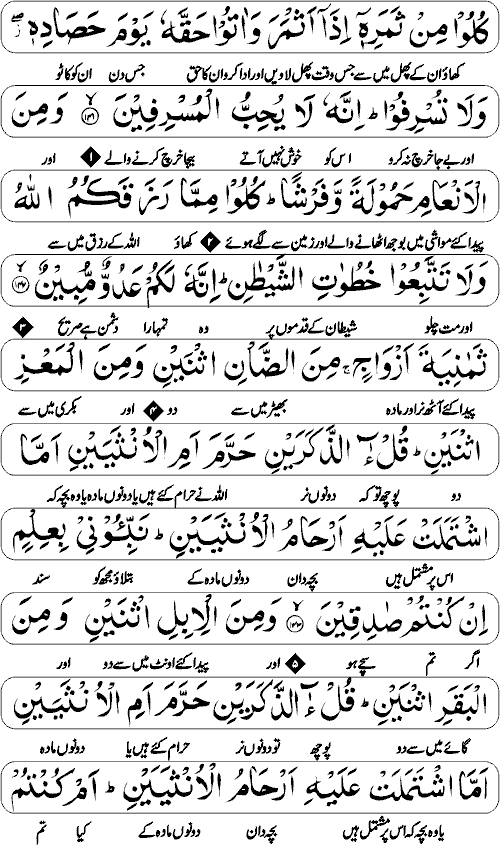 كُلُوۡا مِنۡ ثَمَرِهٖۤ اِذَاۤ اَثۡمَرَ وَاٰتُوۡا حَقَّهٗ يَوۡمَ حَصَادِهٖ ۖ
کھاؤ ان کے پھل میں سے جس وقت پھل لاویں اور ادا کرو ان کا حق جس دن ان کو کاٹو
وَلَا تُسۡرِفُوۡا ؕ اِنَّهٗ لَا يُحِبُّ الۡمُسۡرِفِيۡنَ ۙ‏﴿۱۴۱﴾ وَمِنَ
اور بے جا خرچ نہ کرو اس کو خوش نہیں آتے بیجا خرچ کرنے والے ۱ اور
الۡاَنۡعَامِ حَمُوۡلَةً وَّفَرۡشًا ؕ كُلُوۡا مِمَّا رَزَقَكُمُ اللّٰهُ
پیدا کئے مواشی میں بوجھ اٹھانے والے اور زمین سے لگے ہوئے ۲ کھاؤ اللہ کے رزق میں سے
وَلَا تَتَّبِعُوۡا خُطُوٰتِ الشَّيۡطٰنِ ؕ اِنَّهٗ لَكُمۡ عَدُوٌّ مُّبِيۡنٌ ۙ‏﴿۱۴۲﴾
اور مت چلو شیطان کے قدموں پر وہ تمہارا دشمن ہے صریح ۳
ثَمٰنِيَةَ اَزۡوَاجٍ ۚ مِنَ الضَّاۡنِ اثۡنَيۡنِ وَمِنَ الۡمَعۡزِ
پیدا کئے آٹھ نر اور مادہ بھیڑ میں سے دو ۴ اور بکری میں سے
اثۡنَيۡنِ ؕ قُلۡ ءٰٓالذَّكَرَيۡنِ حَرَّمَ اَمِ الۡاُنۡثَيَيۡنِ اَمَّا
دو پوچھ تو کہ دونوں نر اللہ نے حرام کئے ہیں یا دونوں مادہ یا وہ بچہ کہ
اشۡتَمَلَتۡ عَلَيۡهِ اَرۡحَامُ الۡاُنۡثَيَيۡنِ ؕ نَبِّـُٔوۡنِىۡ بِعِلۡمٍ
اس پر مشتمل ہیں بچہ دان دونوں مادہ کے بتلاؤ مجھ کو سند
اِنۡ كُنۡتُمۡ صٰدِقِيۡنَ ۙ‏﴿۱۴۳﴾ وَمِنَ الۡاِبِلِ اثۡنَيۡنِ وَمِنَ
اگر تم سچے ہو ۵ اور پیدا کئے اونٹ میں سے دو اور
الۡبَقَرِ اثۡنَيۡنِ ؕ قُلۡ ءٰٓالذَّكَرَيۡنِ حَرَّمَ اَمِ الۡاُنۡثَيَيۡنِ
گائے میں سے دو پوچھ تو دونوں نر حرام کئے ہیں یا دونوں مادہ
اَمَّا اشۡتَمَلَتۡ عَلَيۡهِ اَرۡحَامُ الۡاُنۡثَيَيۡنِ ؕ اَمۡ كُنۡتُمۡ
یا وہ بچہ کہ اس پر مشتمل ہیں بچہ دان دونوں مادہ کے کیا تم